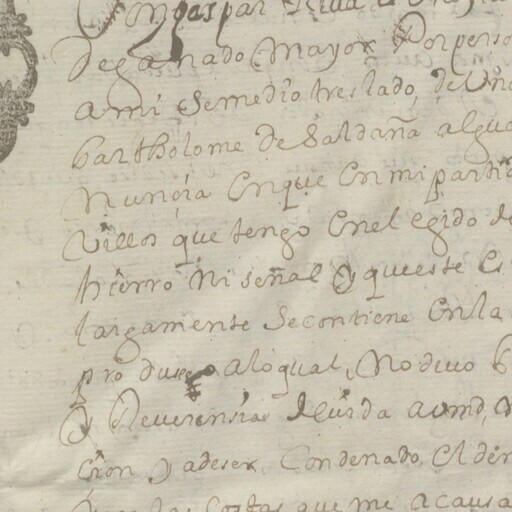 Don gaspar
de ganado mayor Por perso
a mi Se me dio treslado, de Una
bartholome de Saldaña algua
Nunçia En que En mi parti
Villos que tengo En el egido de
hierro Ni señal y que este Es
largamente Se contiene En la
a lo qual, No devo
y Reverensia devida a vmd,
cion y a de ser Condenado El den
costas que me a causa